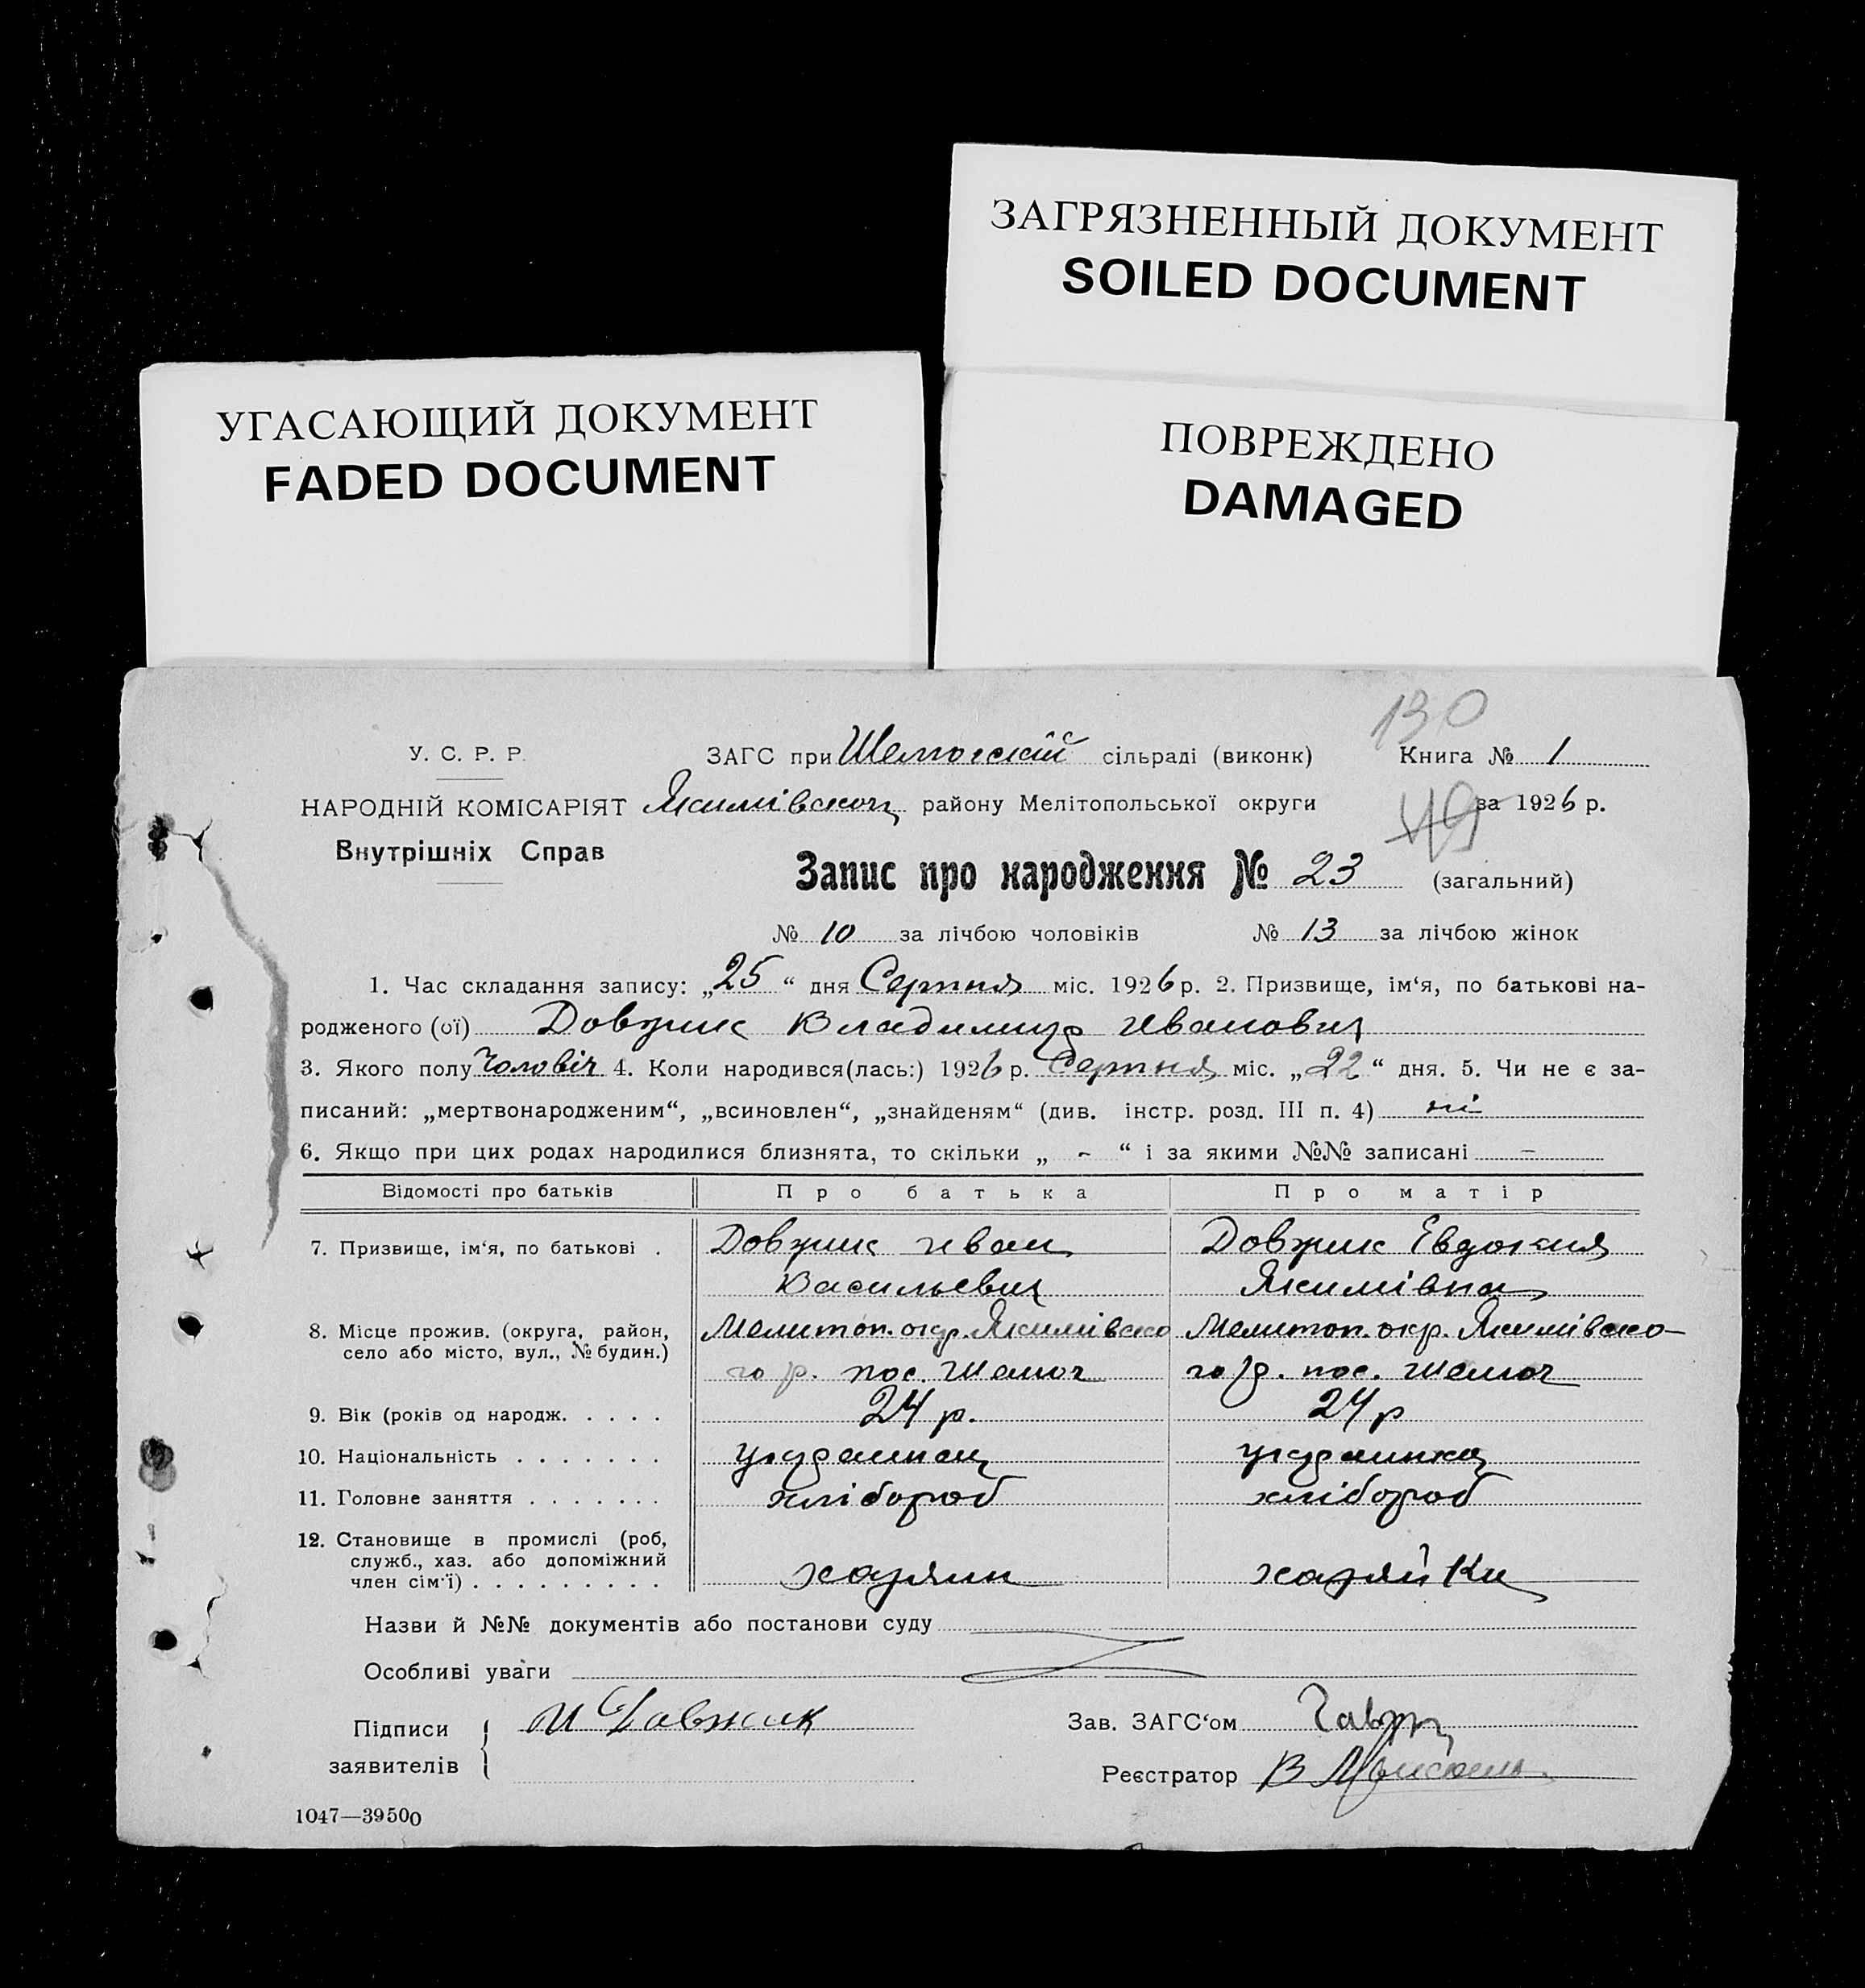 ЗАГРЯЗНЕННЫЙ ДОКУМЕНТ
SOILED DOCUMENT
УГАСАЮЩИЙ ДОКУМЕНТ
FADED DOCUMENT
ПОВРЕЖДЕНО
DAMAGED
130
У. С. Р. Р. ЗАГС при сільраді (виконк) Книга № 1
НАРОДНІЙ КОМІСАРІЯТ Якимівськоы району Мелітопольської округи за 1926 р.
49
Внутрішніх Справ
Запис про народження № 23 (загальний)
№ 10 за лічбою чоловіків № 13 за лічбою жінок
1. Час складання запису: „25“ дня Серпня міс. 1926 р. 2. Призвище, ім‘я, по батькові на-
родженого (ої) Довжик Владимир Иванович
3. Якого полу Чоловіч 4. Коли народився(лась:) 1926 р. Серпня міс. „22“ дня. 5. Чи не є за-
писаний: „мертвонародженим“, „всиновлен“, „знайденям“ (див. інстр. розд. III п. 4) ні
6. Якщо при цих родах народилися близнята, то скільки „ - “ і за якими №№ записані -
Відомості про батьків Про батька Про матір
7. Призвище, ім‘я, по батькові . Довжик Иван Довжик Евдокия
Васильевич Якимівна
8. Місце прожив. (округа, район, Мелитоп. окр. Якимівско Мелитоп. окр. Якимівско-
село або місто, вул., № будин.) го р. пос. Шелюг го р. пос. Шелюг
9. Вік (років од народж. . . . . 24 р. 24 р
10. Національність . . . . . . . украинец украинка
11. Головне заняття . . . . . . . хлібороб хлібороб
12. Становище в промислі (роб,
служб., хаз. або допоміжний
член сім‘ї) . . . . . . . . . хазяин хазяйка
Назви й №№ документів або постанови суду
Особливі уваги
Підписи И Довжик Зав. ЗАГС‘ом
заявителів Реєстратор В
1047—39500